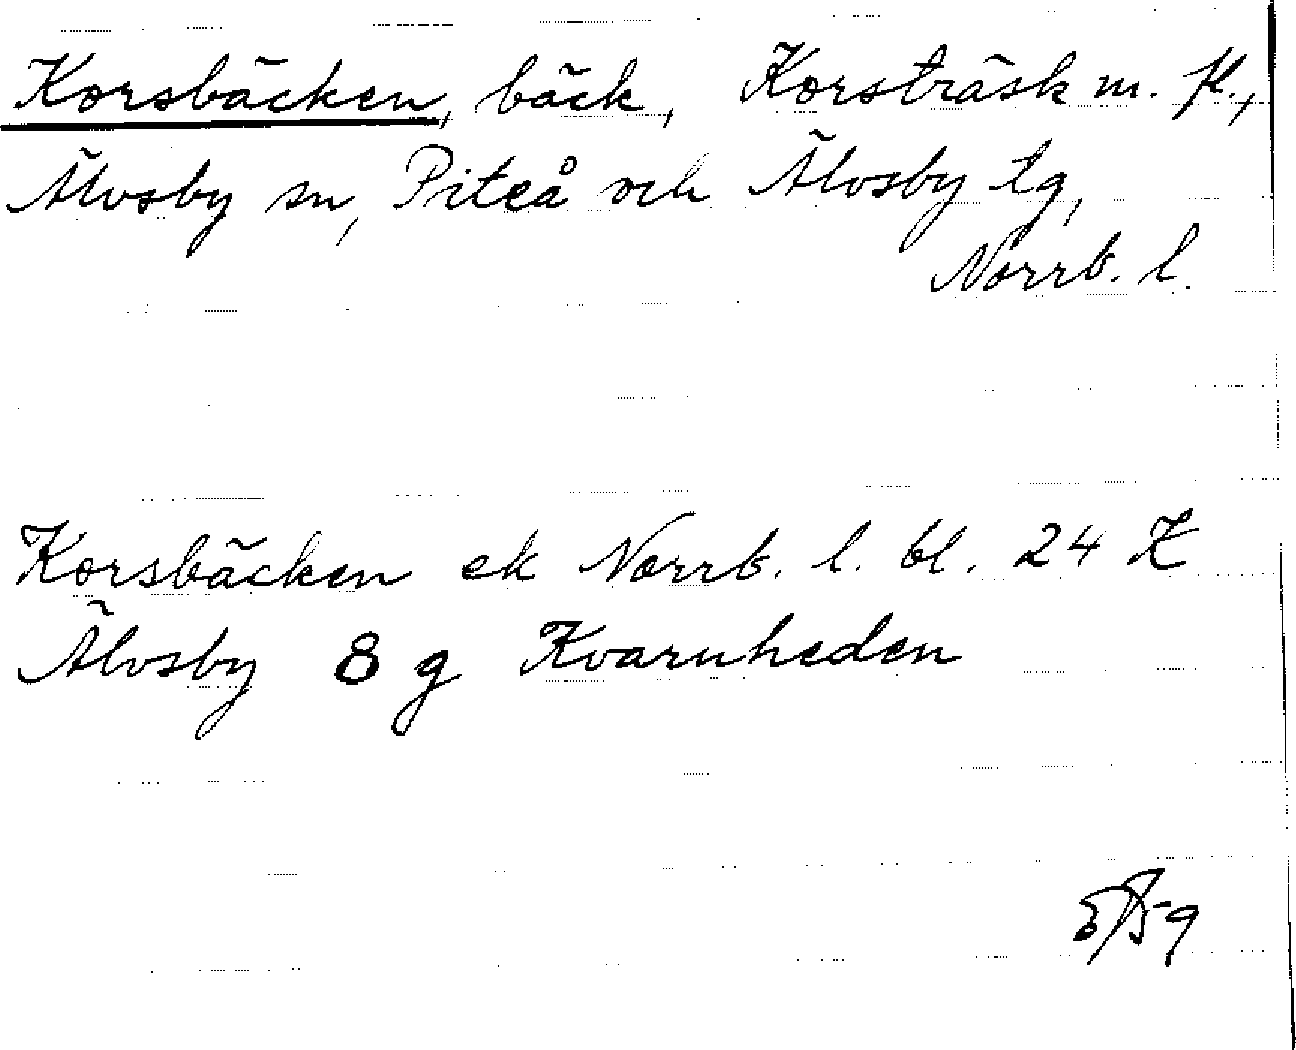 Korsbäcken, bäck, Korsträsk m. fl.,
Älvsby sn, Piteå och Älvsby tg,
Norrb. l.
Korsbäcken ek Norrb. l. bl. 24 K
Älvsby 8 g Kvarnheden